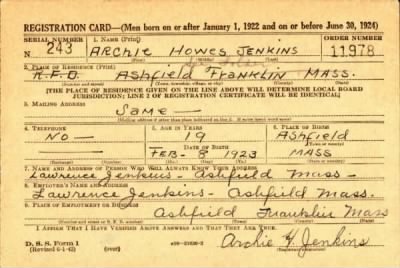 REGISTRATION CARD—(Men born on or after January 1, 1922 and on or before June 30, 1924)
SERIAL NUMBER 1. NAME (Print) ORDER NUMBER
N 243 ARCHIE HOWES JENKINS 11,978
2. PLACE OF RESIDENCE (Print)
R.F.D. Ashfield FRANKLIN MASS.
[THE PLACE OF RESIDENCE GIVEN ON THE LINE ABOVE WILL DETERMINE LOCAL BOARD
JURISDICTION; LINE 2 OF REGISTRATION CERTIFICATE WILL BE IDENTICAL]
3. MAILING ADDRESS
SAME—
[Mailing address if other than place indicated on line 2. If same insert word same]
4. TELEPHONE 5. AGE IN YEARS 6. PLACE OF BIRTH
NO— 19 Ashfield
DATE OF BIRTH
FEB- 8 1923 MASS
7. NAME AND ADDRESS OF PERSON WHO WILL ALWAYS KNOW YOUR ADDRESS
Lawrence Jenkins- Ashfield Mass-
8. EMPLOYER'S NAME AND ADDRESS
Lawrence Jenkins- Ashfield Mass.
9. PLACE OF EMPLOYMENT OR BUSINESS
Ashfield Franklin Mass
I AFFIRM THAT I HAVE VERIFIED ABOVE ANSWERS AND THAT THEY ARE TRUE.
D. S. S. Form 1
(Revised 6-1-42) Archie H Jenkins